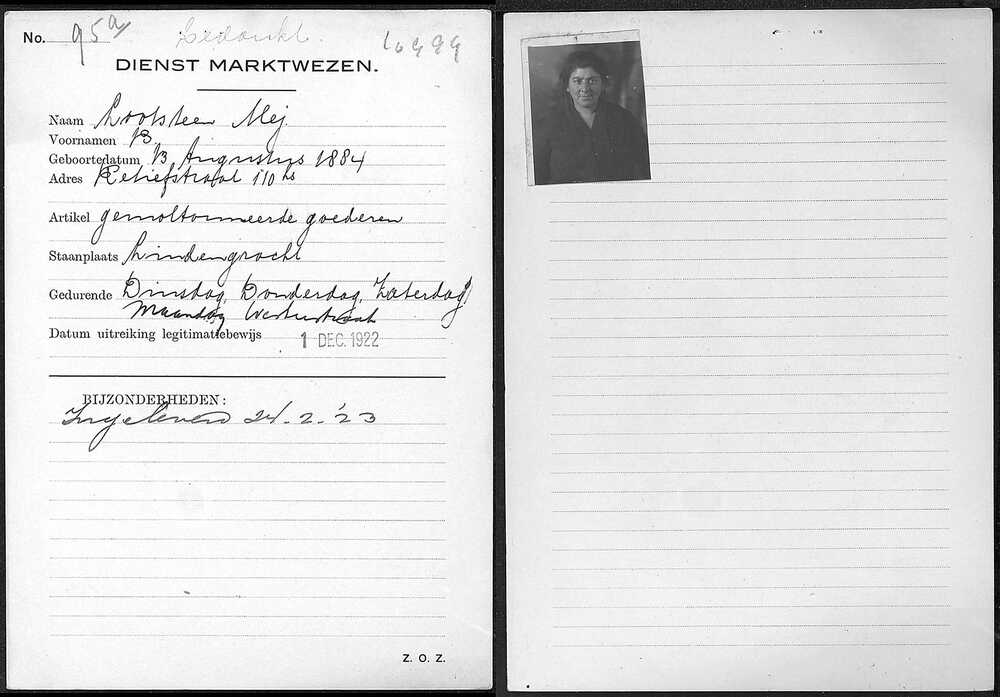 No. 95a Bedankt.
DIENST MARKTWEZEN.
Naam Lootsteen Mej
Voornamen B
Geboortedatum 13 Augustus 1884
Adres Retiefstraat 110 hs
Artikel gemoltonneerde goederen
Staanplaats Lindengracht
Gedurende Dinsdag, Donderdag, Zaterdag
Maandag Westerstraat
Datum uitreiking legitimatiebewijs 1 DEC. 1922
BIJZONDERHEDEN:
Ingeleverd 24.2.'23
Z. O. Z.